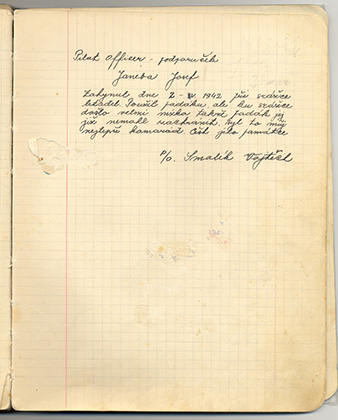 Pilot Officer - podporučík
Janeba Josef
Zahynul dne 2-IV. 1942 při srážce
letadel. Použil padáku, ale ku srážce
došlo velmi nízko takže padák jej
již nemohl zachránit. Byl to můj
nejlepší kamarád Čest jeho památce
P/O. Smolík Vojtěch